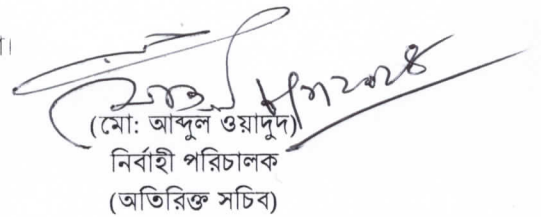 ।
(মো: আব্দুল ওয়াদুদ)
নির্বাহী পরিচালক
(অতিরিক্ত সচিব)